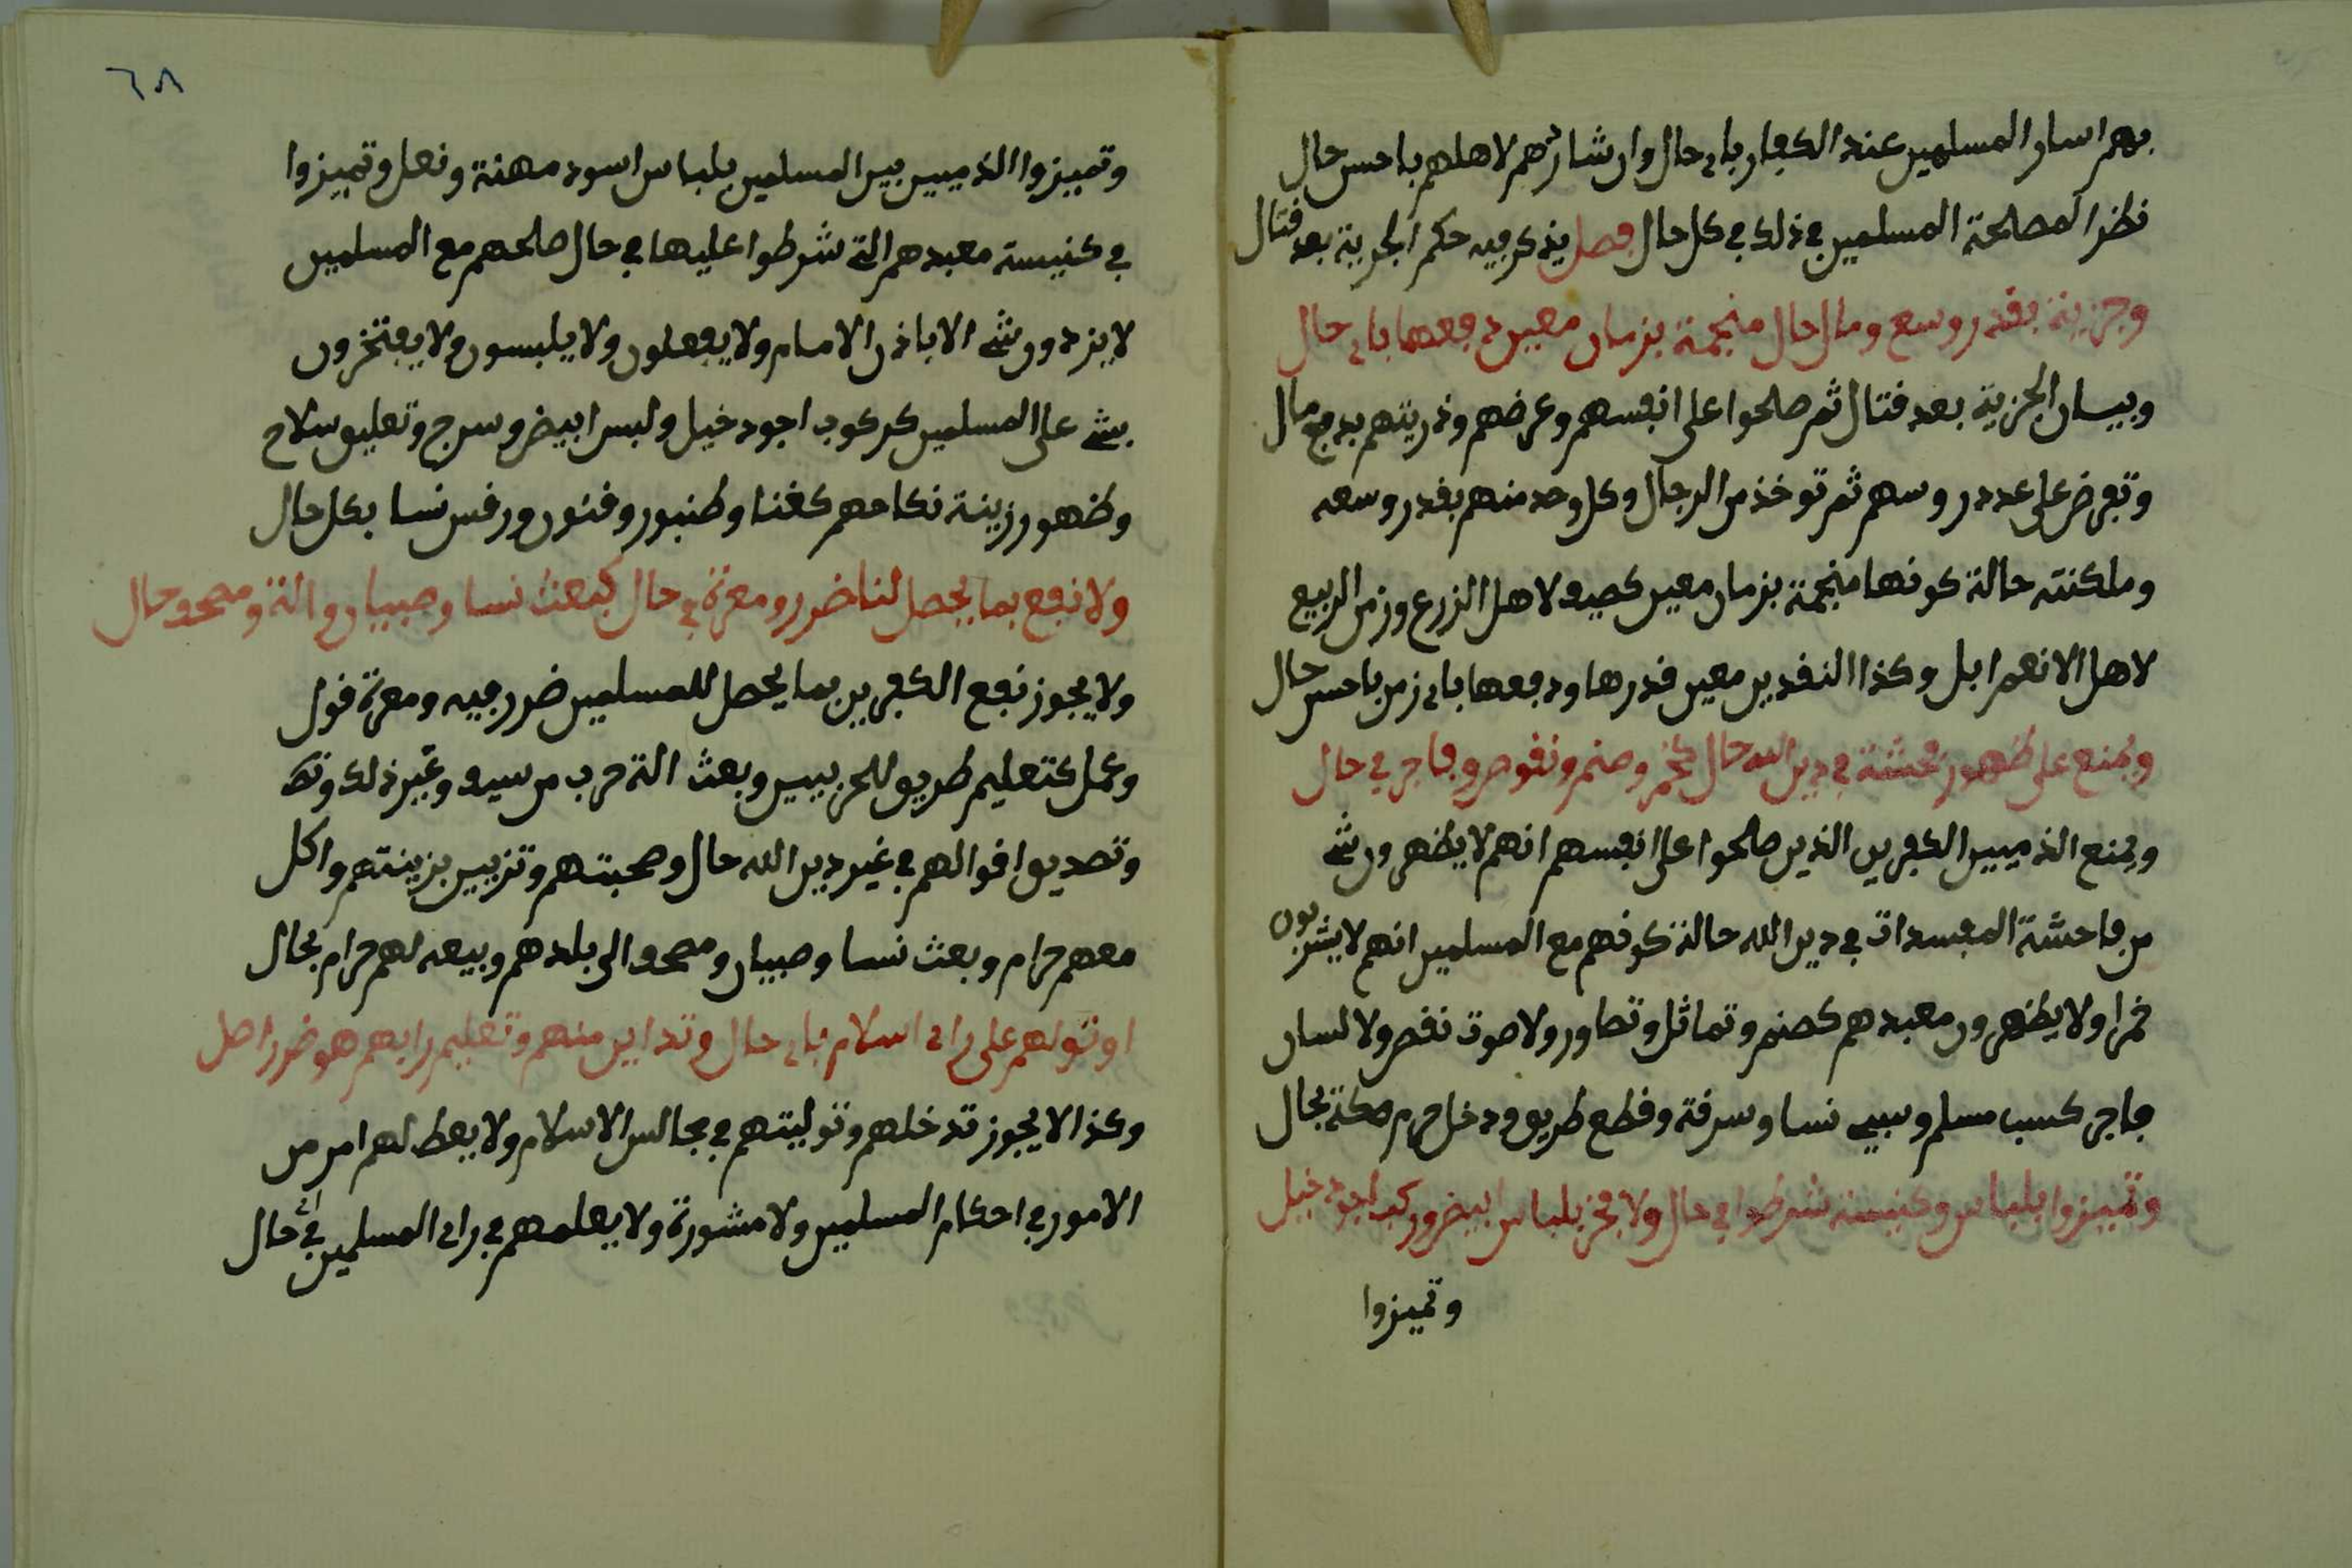 بهم اسار المسلمين عند الكفار باي حال وان شا ردهم لاهلهم باحسن حال
نظرا لمصلحة المسلمين في ذلك في كل حال فصل يذكر فيه حكم الجزية بعد قتال
وجزية بقدر وسع ومال حال منجمة بزمان معين دفعها باي حال
وبيان الجزية بعد قتال ثم صلحوا على انفسهم وعرضهم وذريتهم بدفع مال
وتفرض على عدد روسهم ثم توخذ من الرجال وكل وحد منهم بقدر وسعه
وملكته حالة كونها منجمة بزمان معين كصيف لاهل الزرع وزمن الربيع
لاهل الانعم ابل وكذا النقدين معين قدرها ودفعها باي زمن باحسن حال
ويمنع على ظهور فحشة في دين الله حال كخمر وصنم ونقوص وفاجر في حال
ويمنع الذميين الكفرين الذين صلحوا على انفسهم انهم لا يظهرون شي
من فاحشة المفسدات في دين الله حالة كونهم مع المسلمين انهم لا يشربون
خمرا ولا يظهرون معبدهم كصنم وتماثل وتصاور ولا صوت نقص ولا لسان
فاجر كسب مسلم وسبي نسا وسرقة وقطع طريق ودخل حرم مكة بحال
وتميزوا بلباس وكنيسة شرطوا في حال ولا فخر بلباس ابيض وركب اجود خيل
وتميزوا
٦٨
وتميزوا الذميين بين المسلمين بلباس اسود مهنة ونعل وتميزوا
في كنيسة معبدهم التي شرطوا عليها في حال صلحهم مع المسلمين
لا يزدون شي الا باذن الامام ولا يفعلون ولا يلبسون ولا يفتخرون
بشي على المسلمين كركوب اجود خيل ولبس ابيض وسرج وتعليق سلاح
وظهور زينة نكاحهم كغنا وطنبور وفنون ورقس نسا بكل حال
ولا نفع بما يحصل لنا ضرر ومعرة في حال كبعث نسا وصبيان والة ومصحف حال
ولا يجوز نفع الكفرين بما يحصل للمسلمين ضرر فيه ومعرة قول
وعمل كتعليم طريق للحربيين وبعث الة حرب من سيف وغير ذلك
وتصديق اقوالهم في غير دين الله حال وصحبتهم وتزيين بزينتهم واكل
معهم حرام وبعث نسا وصبيان ومصحف الى بلدهم وبيعه لهم حرام بحال
او تولهم على راي اسلام باي حال وتداين منهم وتعليم رايهم هو ضرر اصل
وكذا لا يجوز تدخلهم وتوليتهم في مجالس الاسلام ولا يعط لهم امر من
الامور في احكام المسلمين ولا مشورة ولا يعلمهم في راي المسلمين في اي حال